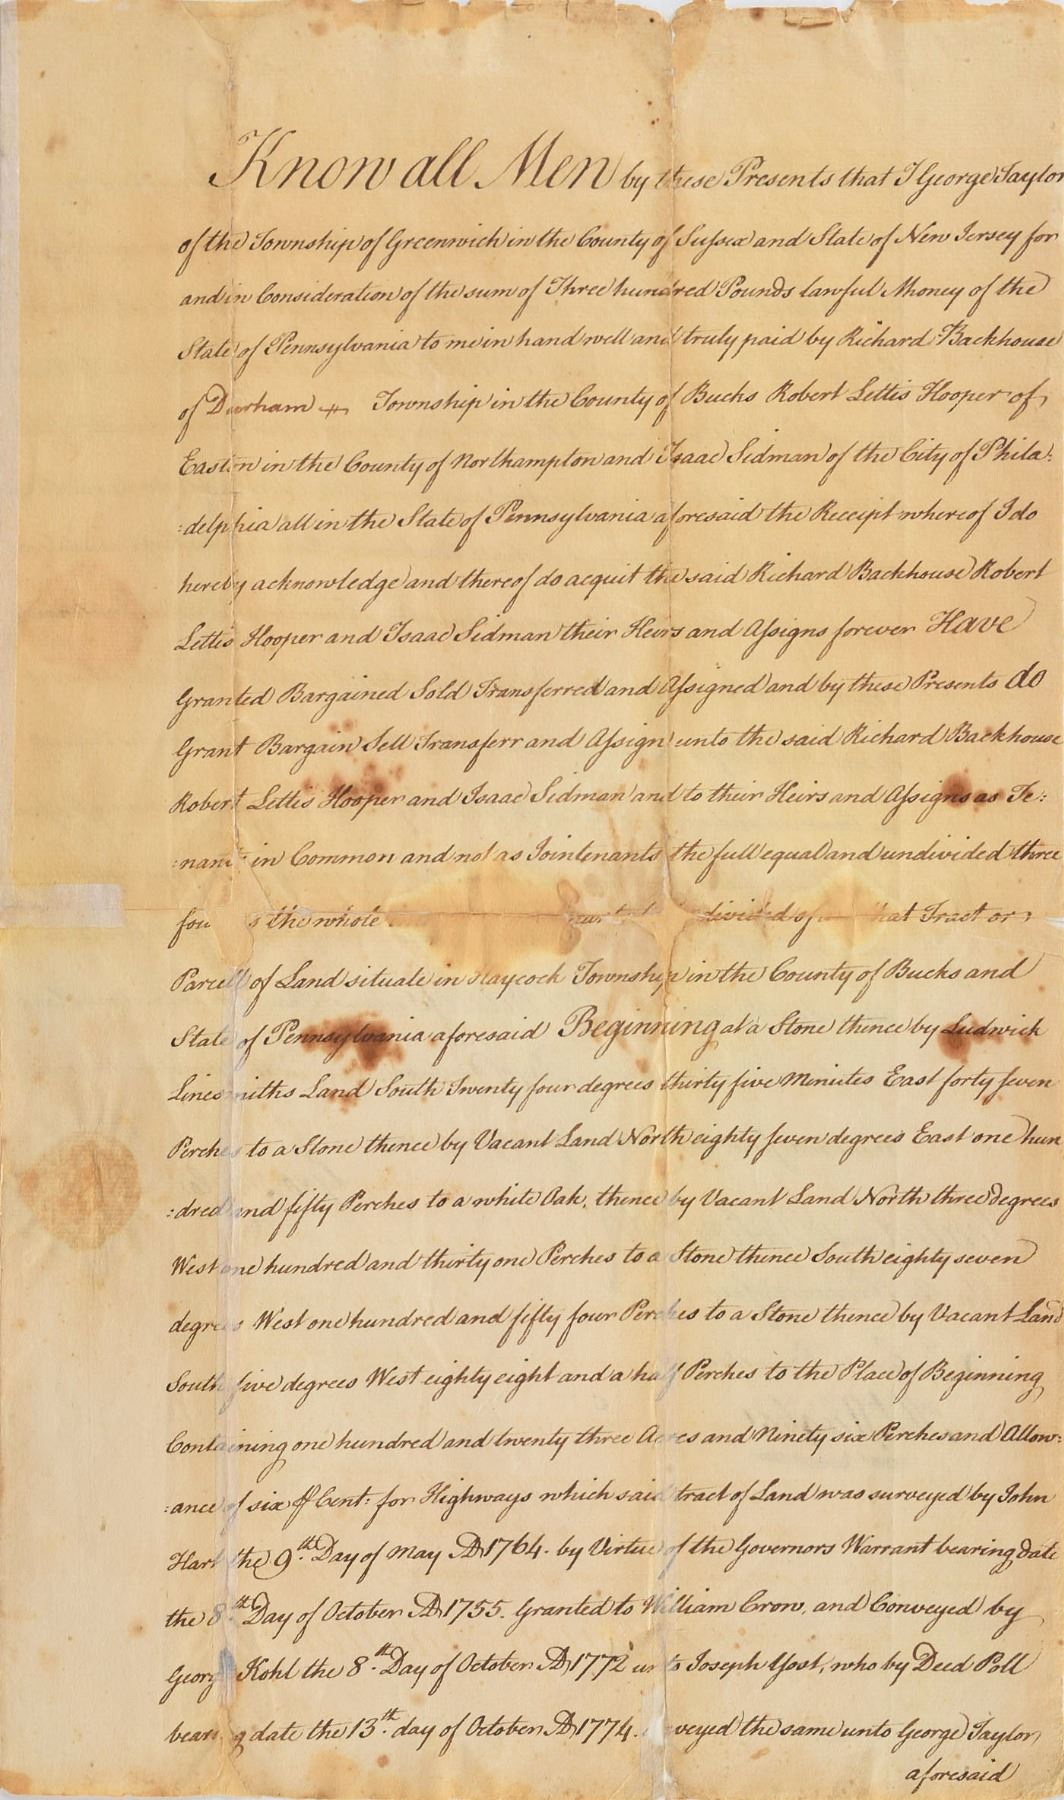 Know all Men by these Presents that I George Taylor
of the Township of Greenwich in the County of Sussex and State of New Jersey for
and in Consideration of the sum of Three hundred Pounds lawful Money of the
State of Pennsylvania to me in hand well and truly paid by Richard Backhouse
of Durham Township in the County of Bucks Robert Lettis Hooper of
Easton in the County of Northampton and Isaac Sidman of the City of Phila:
:delphia all in the State of Pennsylvania aforesaid the Receipt whereof I do
hereby acknowledge and thereof do acquit the said Richard Backhouse Robert
Lettis Hooper and Isaac Sidman their Heirs and Assigns forever Have
Granted Bargained Sold Transferred and Assigned and by these Presents do
Grant Bargain Sell Transferr and Assign unto the said Richard Backhouse
Robert Lettis Hooper and Isaac Sidman and to their Heirs and Assigns as Te:
:nants in Common and not as Jointenants the full equal and undivided three
the whole divided of that Tract or
Parcell of Land situate in Haycock Township in the County of Bucks and
State of Pennsylvania aforesaid Beginning at a Stone thence by Ludwick
Linesmiths Land South Twenty four degrees thirty five Minutes East forty seven
Perches to a Stone thence by Vacant Land North eighty seven degrees East one hun
:dred and fifty Perches to a white Oak, thence by Vacant Land North three degrees
West one hundred and thirty one Perches to a Stone thence South eighty seven
degrees West one hundred and fifty four Perches to a Stone thence by Vacant Land
South five degrees West eighty eight and a half Perches to the Place of Beginning
Containing one hundred and twenty three Acres and Ninety six Perches and Allow:
:ance of six ⅌ Cent: for Highways which said tract of Land was surveyed by John
Hart the 9th. Day of May AD 1764. by Virtue of the Governors Warrant bearing date
the 8th Day of October AD 1755. Granted to William Crow, and Conveyed by
George Kohl the 8th. Day of October AD 1772 unto Joseph Yost, who by Deed Poll
bearing date the 13th. day of October AD 1774. conveyed the same unto George Taylor
aforesaid